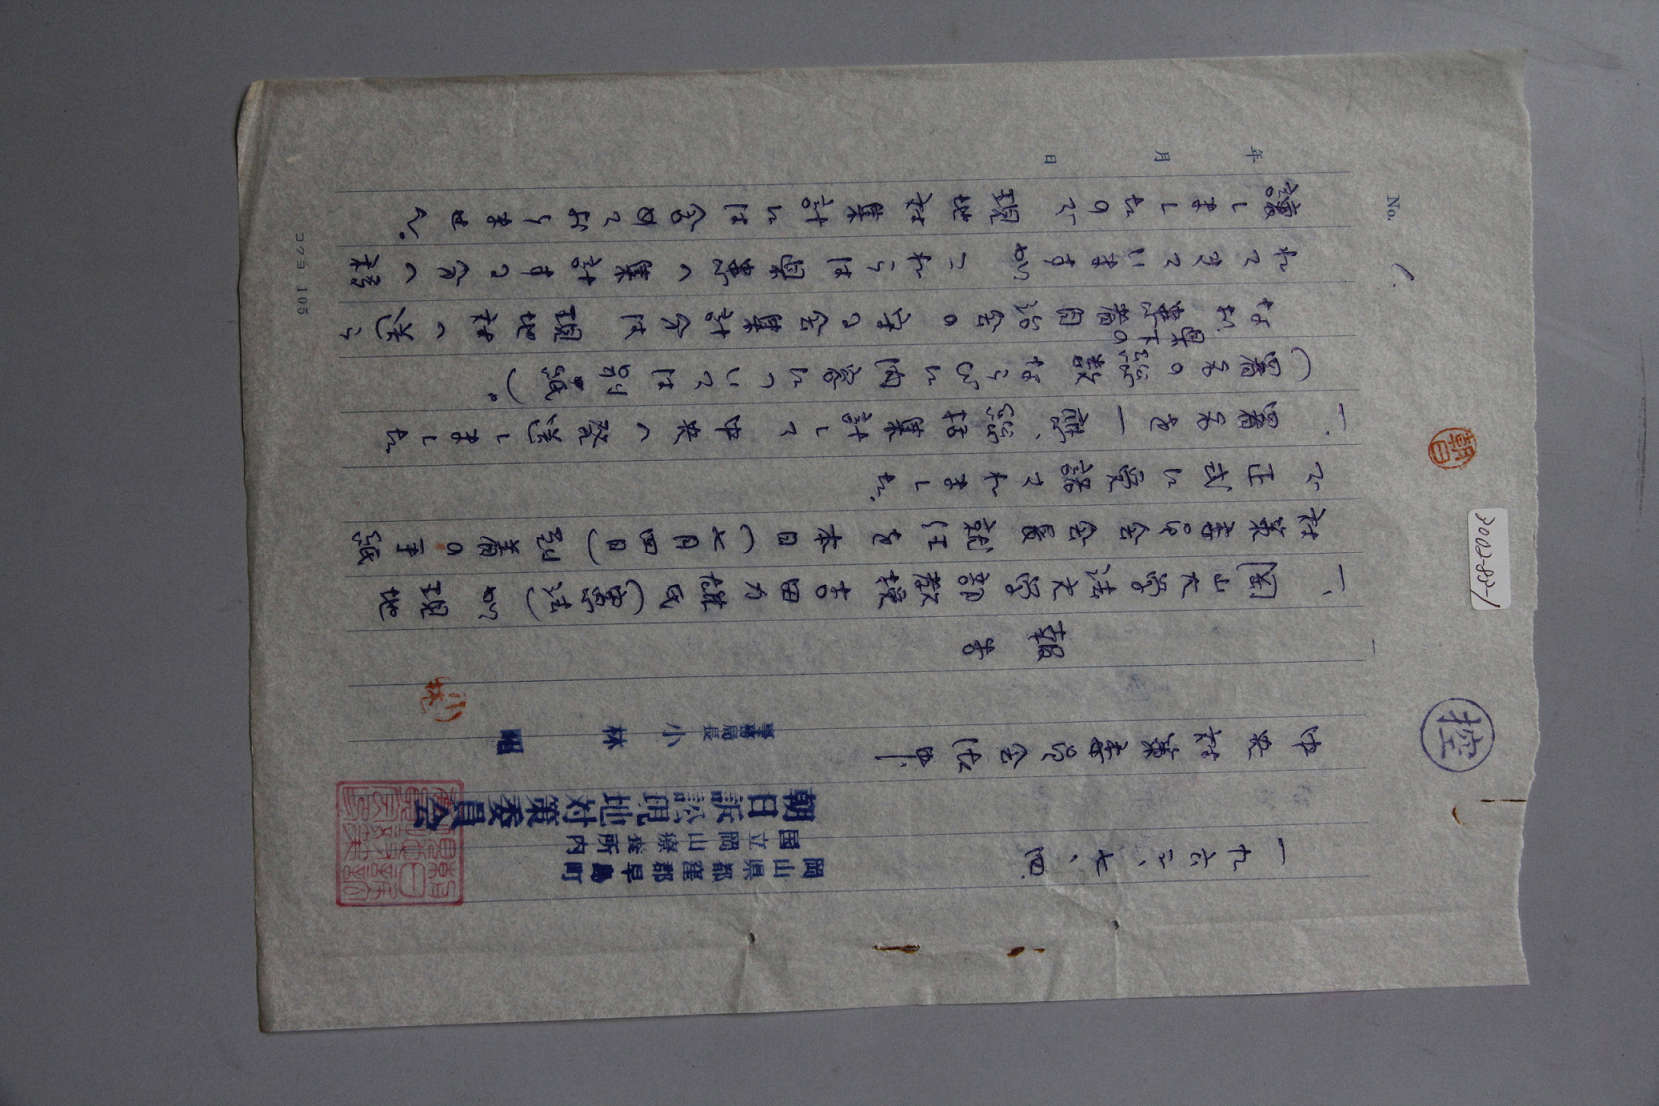 No. 1.
年 月 日
控
朝日
2003-88-1
一九六二、七、四.
岡山県都窪郡早島町
国立岡山療養所内
朝日訴訟現地対策委員会
中央対策委員会御中
事務局長 小林 昭
小林
報告
一、岡山大学法文学部教授 吉田力雄氏(憲法)が現地
対策委員会会長就任を本日(七月四日)別 の手紙
で正式に受諾されました。
一、署名を一 、総括集計して中央へ発送しました
(署名の総数ならびに内容については別紙)。
なお、県下の患者自治会の 集計分は現地対へ 送ら
れてきていますが これらは 集計する
しましたので 現地対集計には含めておりません。
コクヨ 105